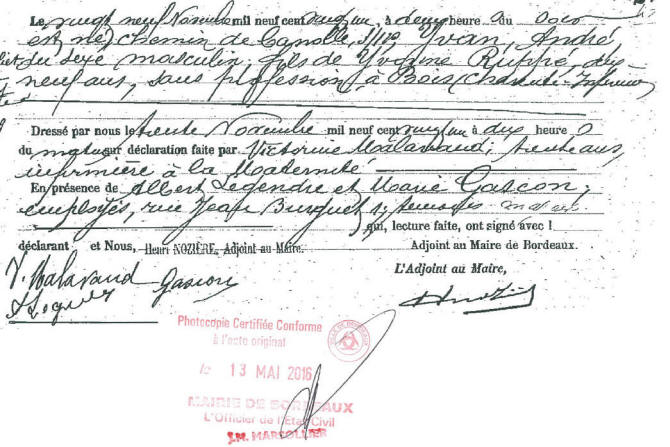 Le vingt neuf Novembre mil neuf cent vingt un, à deux heure du
est né, chemin de Canolle, Yvan, André,
du sexe masculin, fils de Yvonne Ruppé, dix
neuf ans, sans profession, à
Dressé par nous le trente Novembre mil neuf cent vingt un à dix heure
du matin sur déclaration faite par Victorine Malavaud, trente ans,
infirmière à la Maternité
En présence de Albert Legendre et Marie Gascon,
employés, rue Jean Burguet
qui, lecture faite, ont signé avec l
déclarant et Nous, Henri NOZIÈRE, Adjoint au Maire. Adjoint au Maire de Bordeaux.
L'Adjoint au Maire,
V. Malavaud
Gascon
Photocopie Certifiée Conforme
à l'acte original
le 13 MAI 2016
MAIRIE DE BORDEAUX
L'Officier de l'État Civil